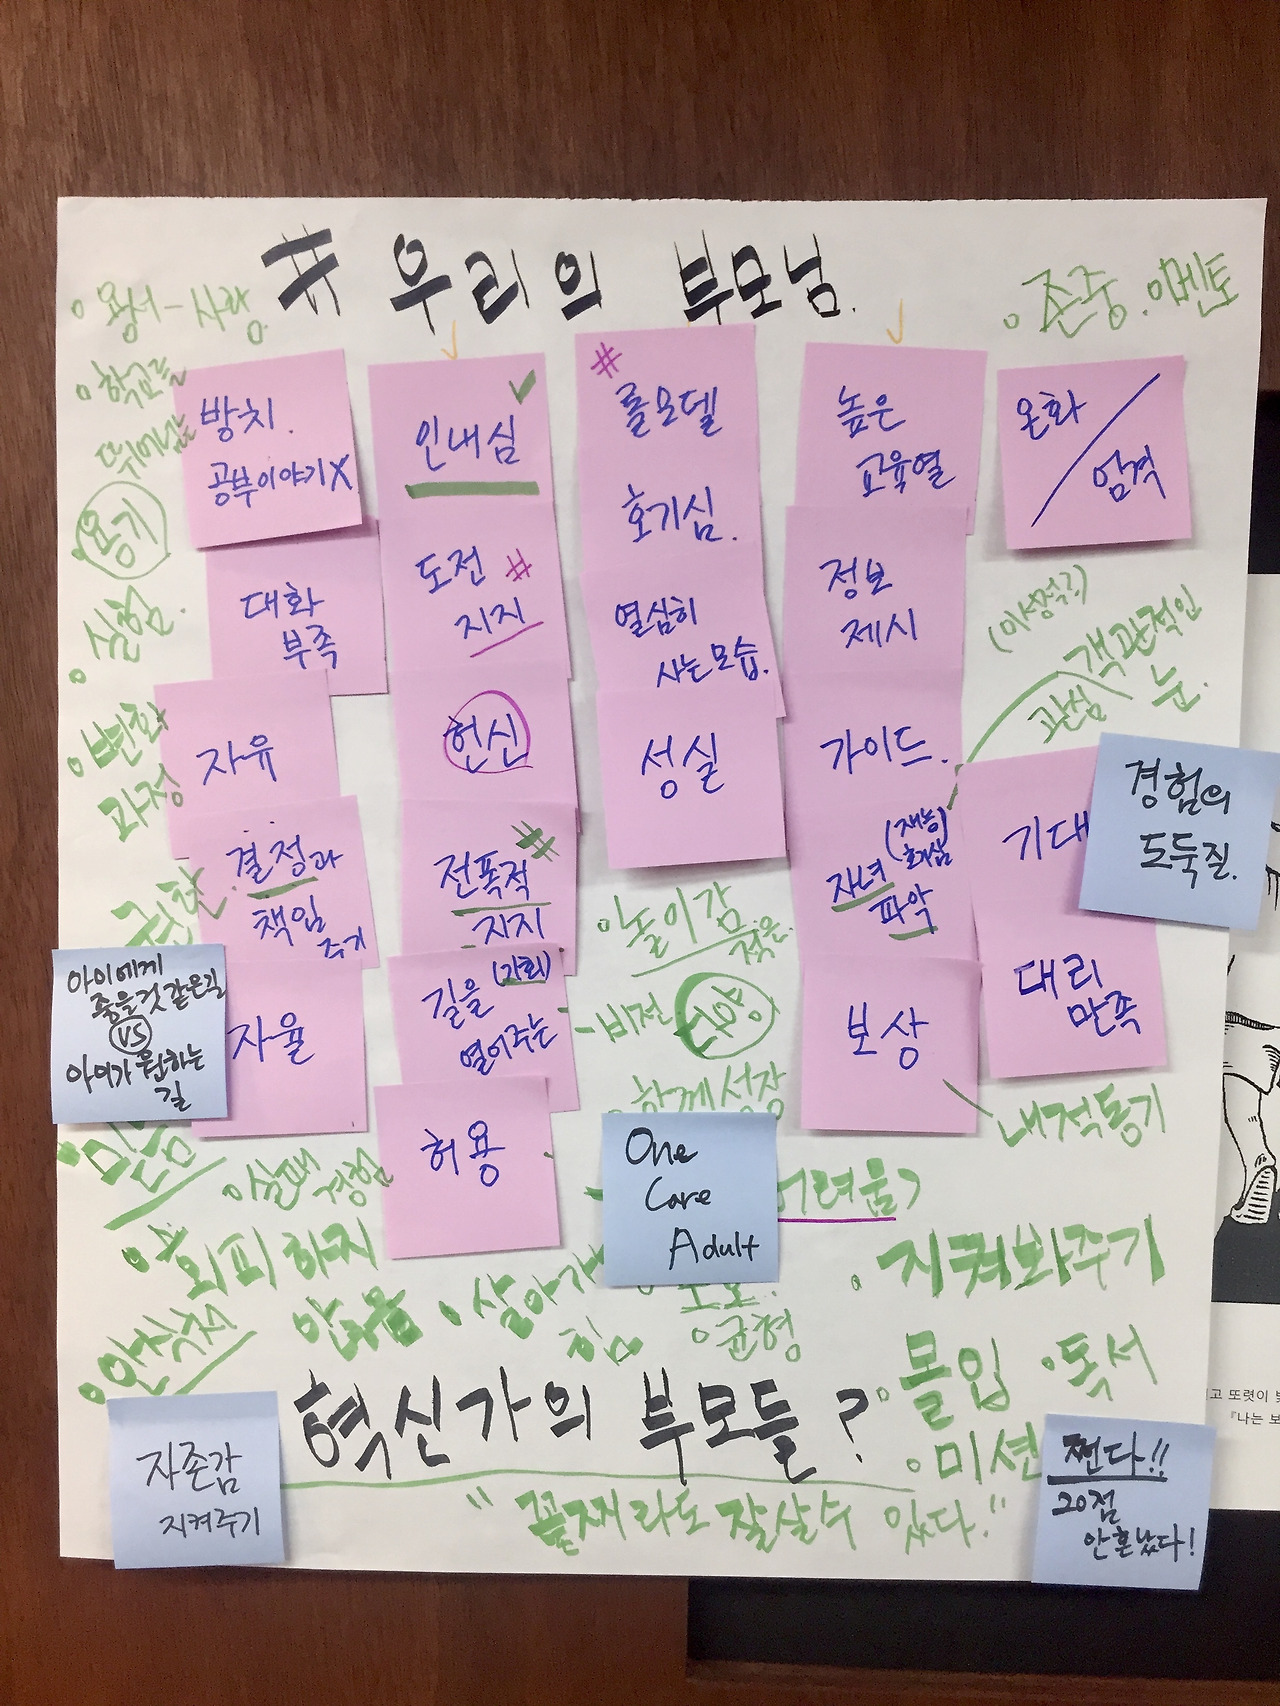 # 우리의 부모님.
용서-사랑
존중. 멘토
방치.
공부이야기X
인내심
#
롤모델
높은
교육열
온화 / 엄격
용기
호기심.
도전 #
지지
대화
부족
열심히
사는모습.
정보
제시
실험.
객관적인
눈.
관심
변화
과정
자유
헌신
성실
가이드.
기대
경험의
도둑질.
결정과
책임
주기
전폭적 #
지지
(재능)
호기심
자녀
파악
놀이감
적은
아이에게
좋을것 같은길
VS
아이가 원하는
길
자율
길을 (기회)
열어주는
-비전
보상
대리
만족
함께 성장
내적동기
믿음
실패
경험
허용
One
Care
Adult
어려움?
회피하지
않음
살아가
힘
지켜봐주기
균형
안식처
몰입
독서
혁신가의 부모들?
미션
자존감
지켜주기
"꼴찌라도 잘살수 있다."
쩐다!!
20점
안혼났다!
고 또렷이
『나는 보